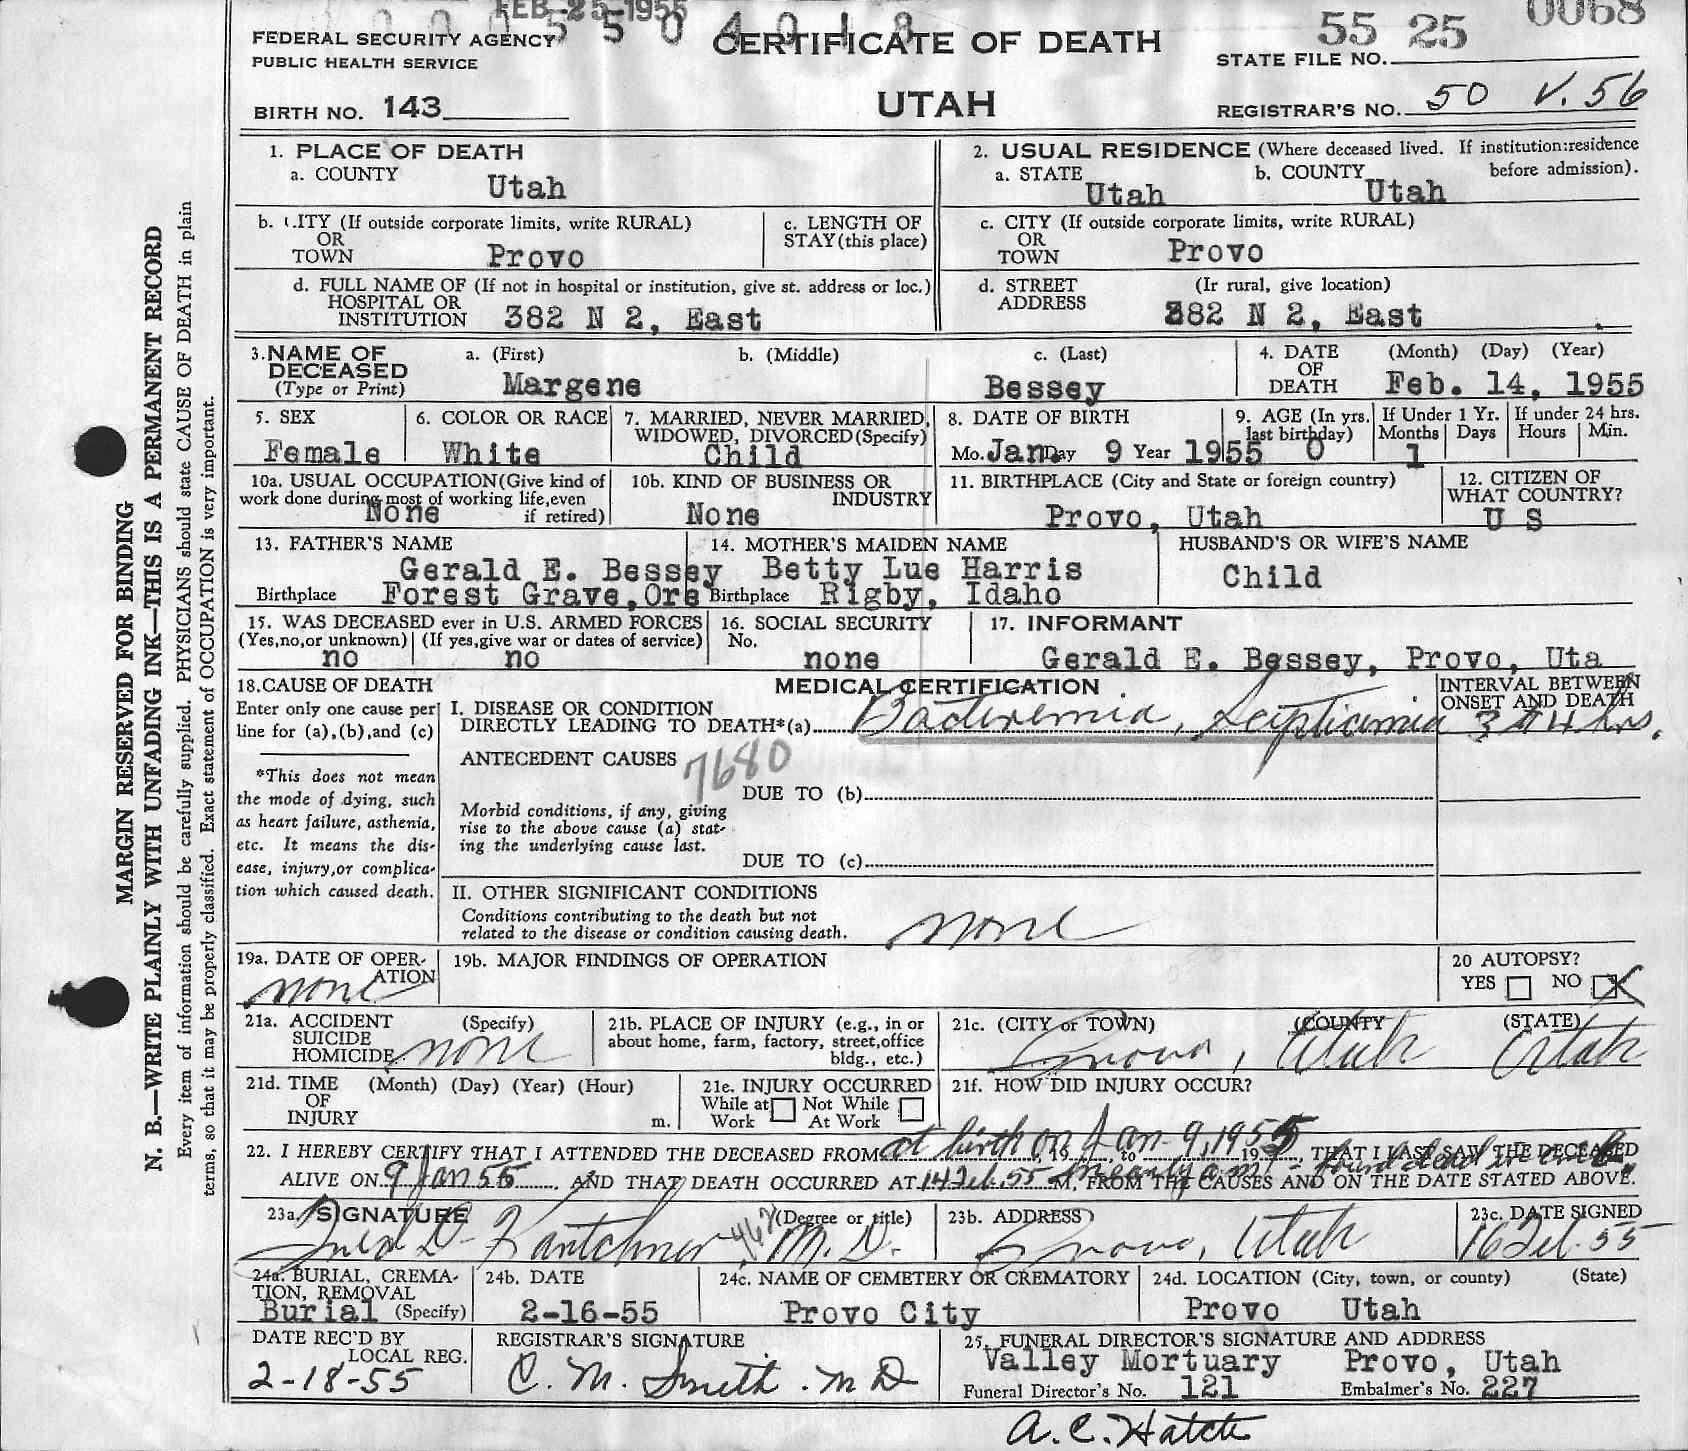 FEB 25 1955
55 25 0068
FEDERAL SECURITY AGENCY
PUBLIC HEALTH SERVICE
CERTIFICATE OF DEATH
STATE FILE NO.
BIRTH NO. 143
UTAH
REGISTRAR'S NO. 50 V. 56
1. PLACE OF DEATH
a. COUNTY Utah
2. USUAL RESIDENCE (Where deceased lived. If institution:residence before admission).
a. STATE Utah b. COUNTY Utah
b. CITY (If outside corporate limits, write RURAL)
OR
TOWN Provo
c. LENGTH OF
STAY(this place)
c. CITY (If outside corporate limits, write RURAL)
OR
TOWN Provo
d. FULL NAME OF (If not in hospital or institution, give st. address or loc.)
HOSPITAL OR
INSTITUTION 382 N 2, East
d. STREET (Ir rural, give location)
ADDRESS 382 N 2, East
3. NAME OF DECEASED
(Type or Print)
a. (First) b. (Middle) c. (Last)
Margene Bessey
4. DATE OF DEATH (Month) (Day) (Year)
Feb. 14, 1955
5. SEX
Female
6. COLOR OR RACE
White
7. MARRIED, NEVER MARRIED,
WIDOWED, DIVORCED(Specify)
Child
8. DATE OF BIRTH
Mo. Jan Day 9 Year 1955
9. AGE (In yrs. last birthday)
0
If Under 1 Yr.
Months Days
1
If under 24 hrs.
Hours Min.
10a. USUAL OCCUPATION(Give kind of
work done during most of working life,even
if retired)
None
10b. KIND OF BUSINESS OR
INDUSTRY
None
11. BIRTHPLACE (City and State or foreign country)
Provo, Utah
12. CITIZEN OF
WHAT COUNTRY?
U S
13. FATHER'S NAME
Gerald E. Bessey
Birthplace Forest Grave,Ore
14. MOTHER'S MAIDEN NAME
Betty Lue Harris
Birthplace Rigby, Idaho
HUSBAND'S OR WIFE'S NAME
Child
15. WAS DECEASED ever in U.S. ARMED FORCES
(Yes,no,or unknown) (If yes,give war or dates of service)
no no
16. SOCIAL SECURITY
No.
none
17. INFORMANT
Gerald E. Bessey, Provo, Uta
18. CAUSE OF DEATH
Enter only one cause per
line for (a),(b),and (c)
*This does not mean
the mode of dying, such
as heart failure, asthenia,
etc. It means the dis-
ease, injury,or complica-
tion which caused death.
MEDICAL CERTIFICATION
INTERVAL BETWEEN
ONSET AND DEATH
I. DISEASE OR CONDITION
DIRECTLY LEADING TO DEATH*(a) Bacteremia, Septicemia
hrs.
ANTECEDENT CAUSES 7680
DUE TO (b)
Morbid conditions, if any, giving
rise to the above cause (a) stat-
ing the underlying cause last.
DUE TO (c)
II. OTHER SIGNIFICANT CONDITIONS
Conditions contributing to the death but not
related to the disease or condition causing death.
none
19a. DATE OF OPER-
ATION
none
19b. MAJOR FINDINGS OF OPERATION
20 AUTOPSY?
YES NO X
21a. ACCIDENT (Specify)
SUICIDE
HOMICIDE none
21b. PLACE OF INJURY (e.g., in or
about home, farm, factory, street,office
bldg., etc.)
21c. (CITY or TOWN) (COUNTY (STATE)
Provo, Utah Utah
21d. TIME (Month) (Day) (Year) (Hour)
OF
INJURY m.
21e. INJURY OCCURRED
While at Work Not While At Work
21f. HOW DID INJURY OCCUR?
22. I HEREBY CERTIFY THAT I ATTENDED THE DECEASED FROM at birth on Jan 9, 1955, 19 , to 19 , THAT I LAST SAW THE DECEASED
ALIVE ON 9 Jan 55, AND THAT DEATH OCCURRED AT 14 Feb. 55 in early a.m. - found dead in crib M, FROM THE CAUSES AND ON THE DATE STATED ABOVE.
23a. SIGNATURE (Degree or title)
M.D.
23b. ADDRESS
Provo, Utah
23c. DATE SIGNED
16 Feb. 55
24a. BURIAL, CREMA-
TION, REMOVAL
Burial (Specify)
24b. DATE
2-16-55
24c. NAME OF CEMETERY OR CREMATORY
Provo City
24d. LOCATION (City, town, or county) (State)
Provo Utah
DATE REC'D BY
LOCAL REG.
2-18-55
REGISTRAR'S SIGNATURE
C. M. Smith. MD
25. FUNERAL DIRECTOR'S SIGNATURE AND ADDRESS
Valley Mortuary Provo, Utah
Funeral Director's No. 121 Embalmer's No. 227
A. C. Hatch
MARGIN RESERVED FOR BINDING
N. B.—WRITE PLAINLY WITH UNFADING INK—THIS IS A PERMANENT RECORD
Every item of information should be carefully supplied. PHYSICIANS should state CAUSE OF DEATH in plain
terms, so that it may be properly classified. Exact statement of OCCUPATION is very important.